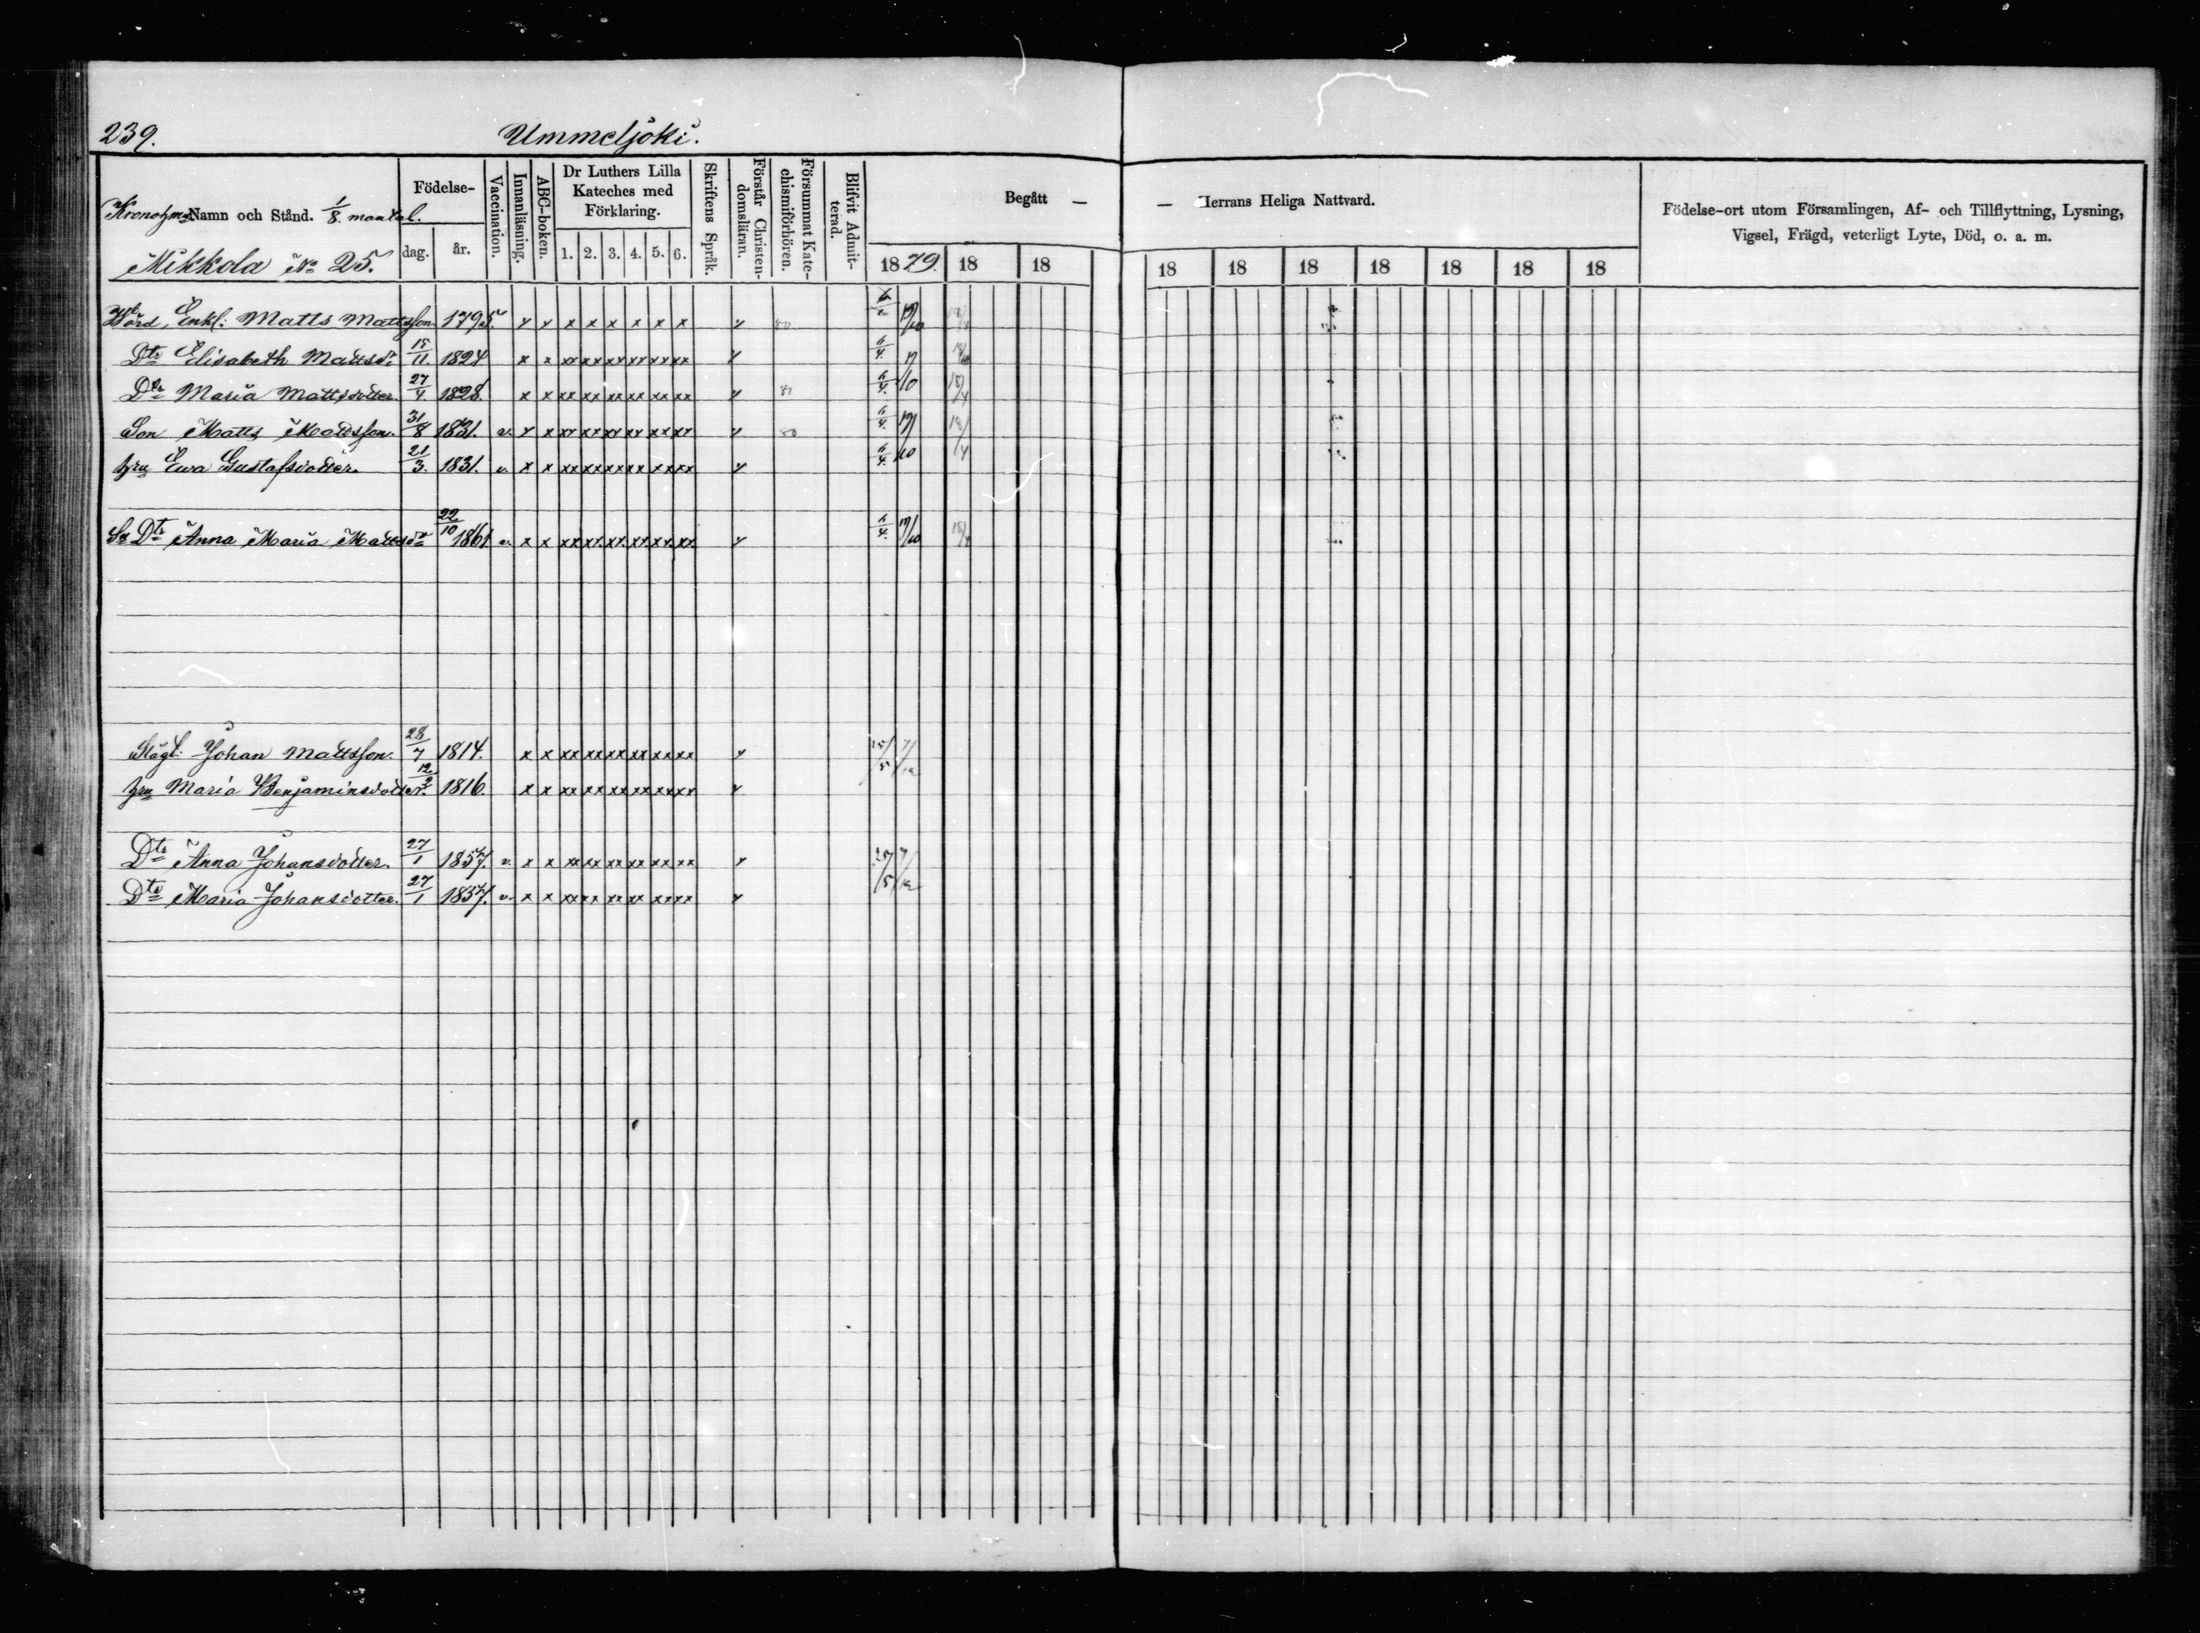 239. Ummeljoki.
Namn och Stånd. 1/8 mantal.
Mikkola No 25.
Födelse-
dag. år.
Vaccination.
Innanläsning.
ABC-boken.
Dr Luthers Lilla
Kateches med
Förklaring.
1. 2. 3. 4. 5. 6.
Skriftens Språk.
Förstår Christen-
domsläran.
Försummat Kate-
chismiförhören.
Blifvit Admit-
terad.
Begått —
1879. 18 18
— Herrans Heliga Nattvard.
18 18 18 18 18 18 18
Födelse-ort utom Församlingen, Af- och Tillflyttning, Lysning,
Vigsel, Frägd, veterligt Lyte, Död, o. a. m.
Enkl: Matts Mattsson 1795. x x x x x x
Dtr Elisabeth Mattsdr 15/11 1824 x x xx xx xx xx xx xx
Dtr Maria Mattsdotter. 27/4 1828. x x xx xx xx xx xx xx
Son Matts Mattsson. 31/8 1821. v. x x xx xx xx xx xx xx
hru Ewa Gustafsdotter. 21/3. 1831. v. x x xx xx xx xx xx xx
Dtr Anna Maria Mattsdr 22/10 1861 v. x x xx xx xx xx xx xx
Johan Mattsson. 28/7 1814. x x xx xx xx xx xx xx
hru Maria Benjaminsdotter. 12/2 1816. x x xx xx xx xx xx xx
Dtr Anna Johansdotter. 27/1 1857. v. x x xx xx xx xx xx xx
Dtr Maria Johansdotter. 27/1 1857. v. x x xx xx xx xx xx xx